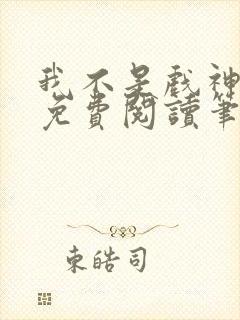 我不是戲神
免費閱讀筆
東皓司